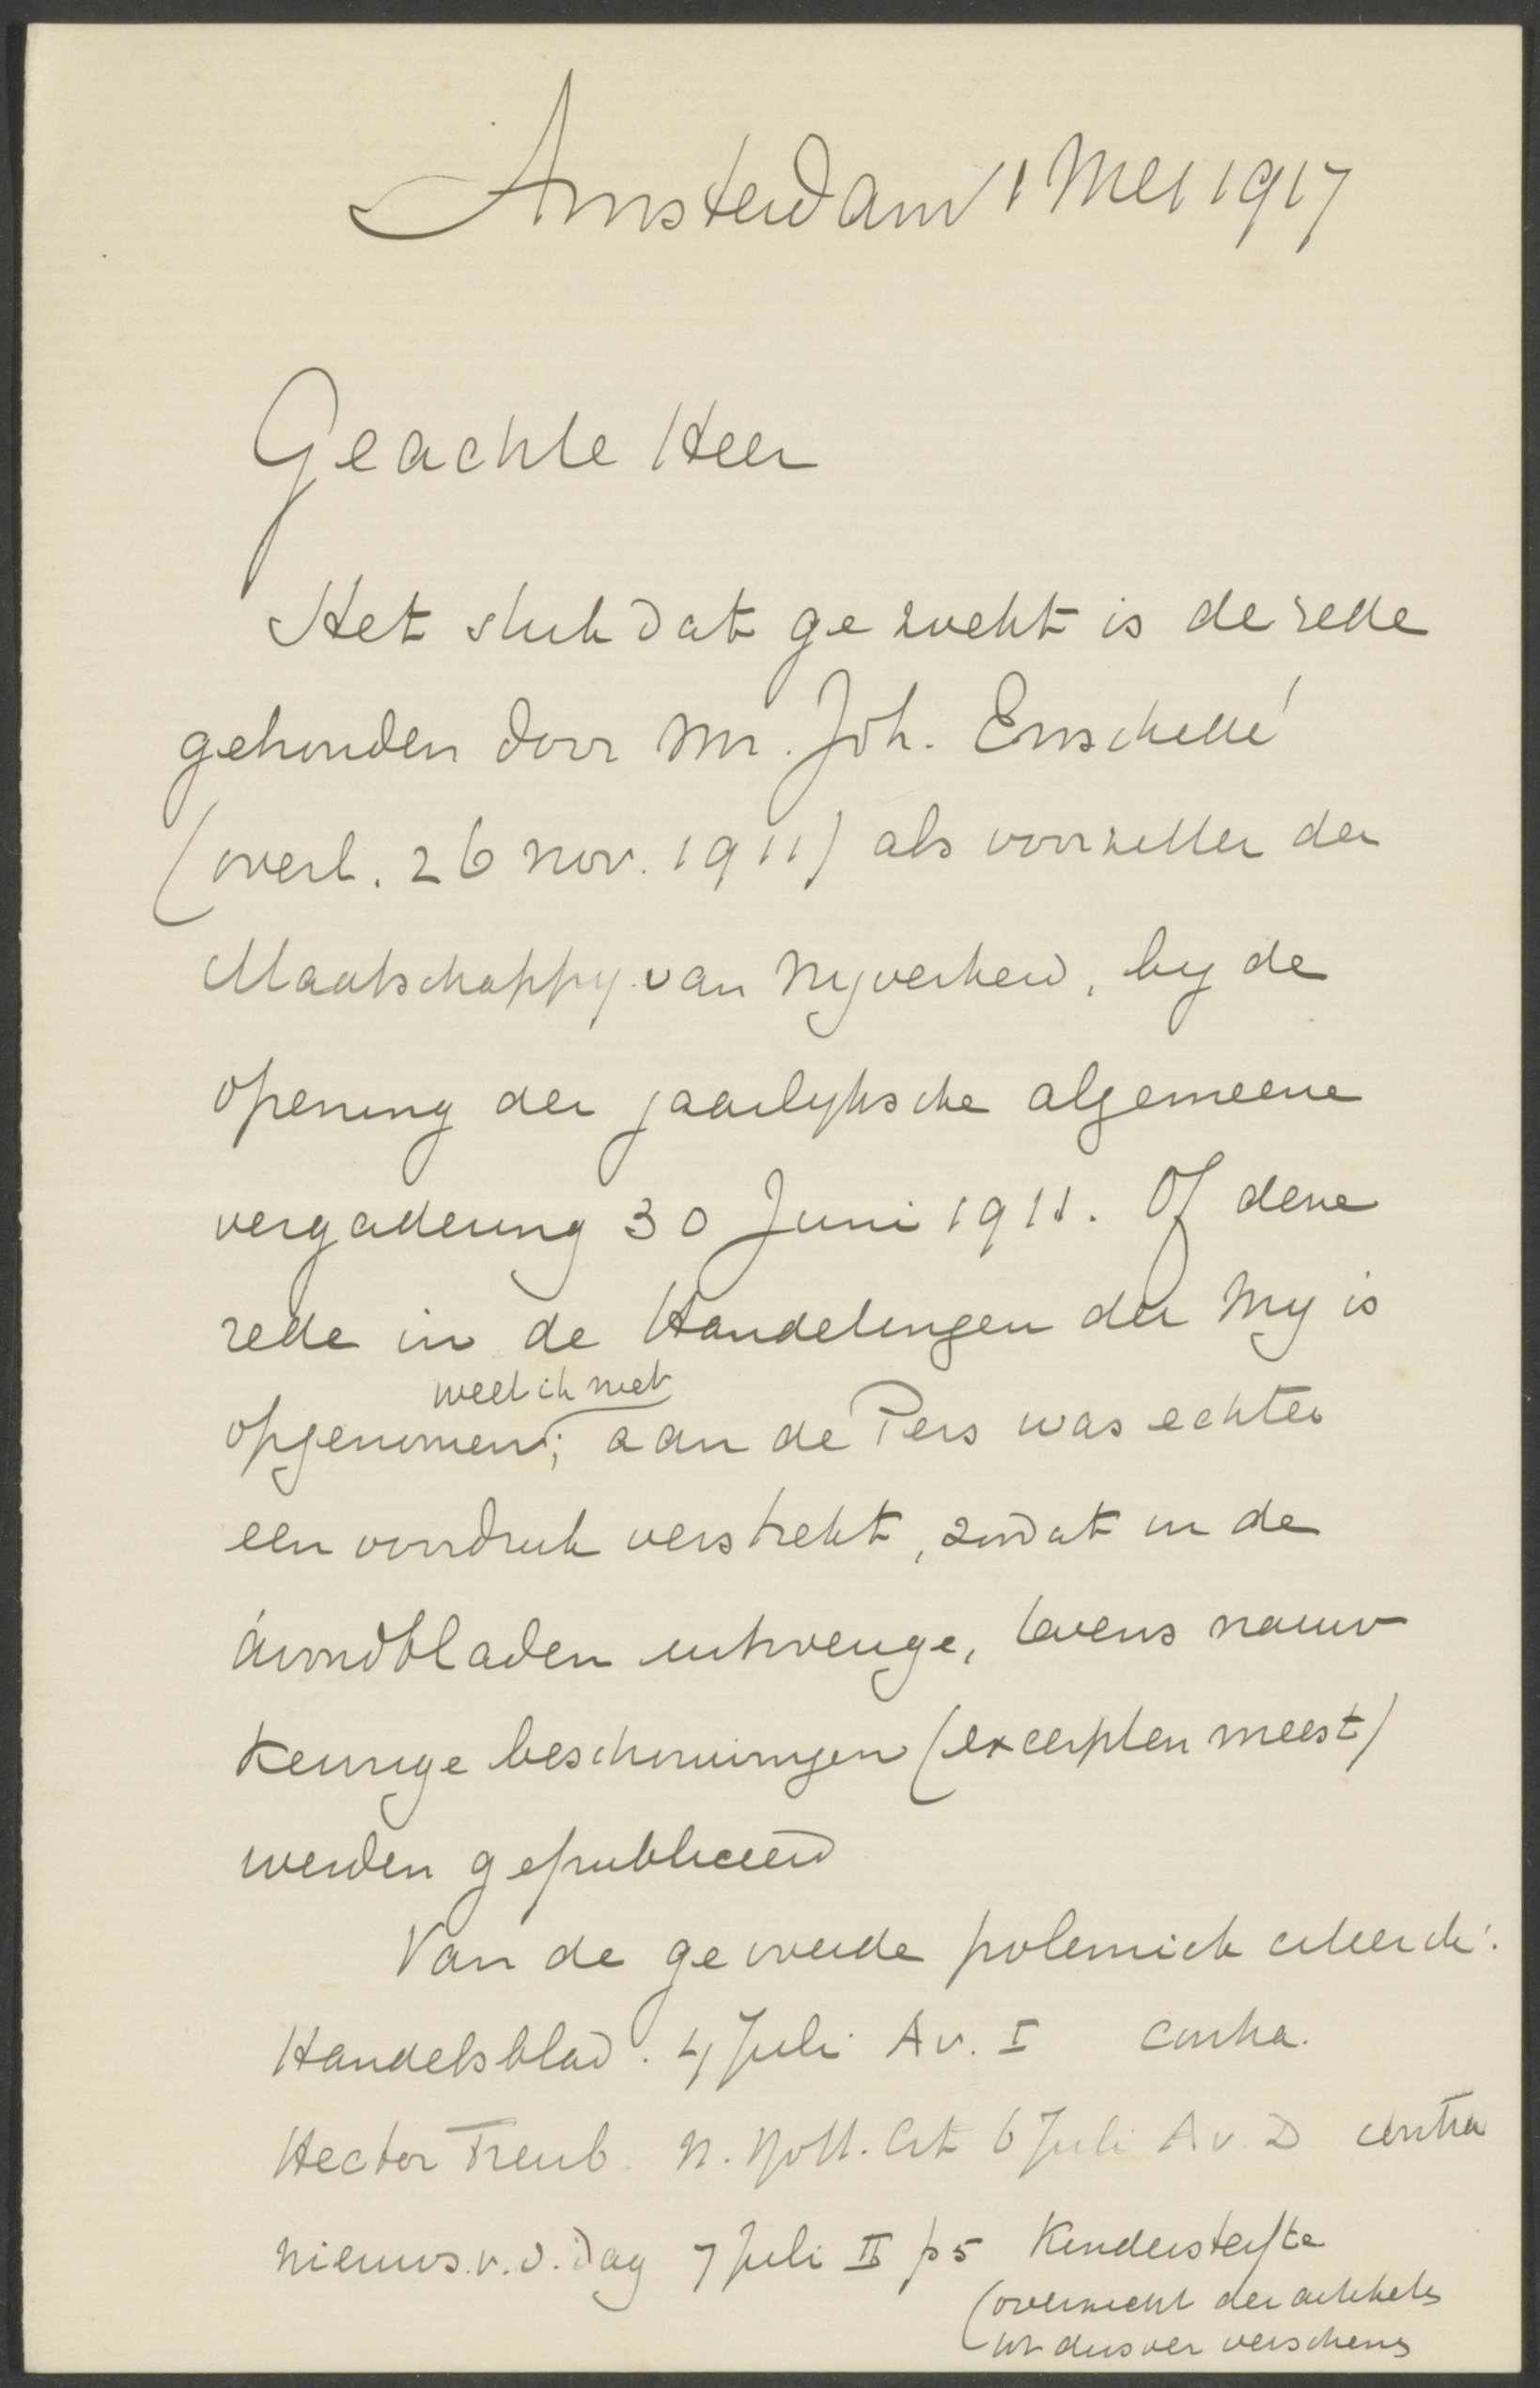 Amsterdam 1 Mei 1917
Geachte Heer
Het stuk dat gezocht is de rede
gehouden door Mr. Joh. Enschedé
(overl. 26 Nov. 1911) als voorzitter der
Maatschappy van Nyverheid, by de
opening der jaarlyksche algemeene
vergadering 30 Juni 1911. Of deze
rede in de Handelingen der My is
weet ik niet
opgenomen; aan de Pers was echter
een voordruk verstrekt, zoodat in de
avondbladen uitvoerige, tevens nauw
keurige beschouwingen (excerpten meest)
werden gepubliceerd
Van de gevoerde polemiek citeer ik:
Handelsblad. 4 Juli Av. I contra.
Hector Treub. N. Rott. Crt 6 Juli Av. D contra
Nieuws. v. d. Dag 7 Juli II p 5 Kindersterfte
(overzicht der artikels
tot dusver verschenen